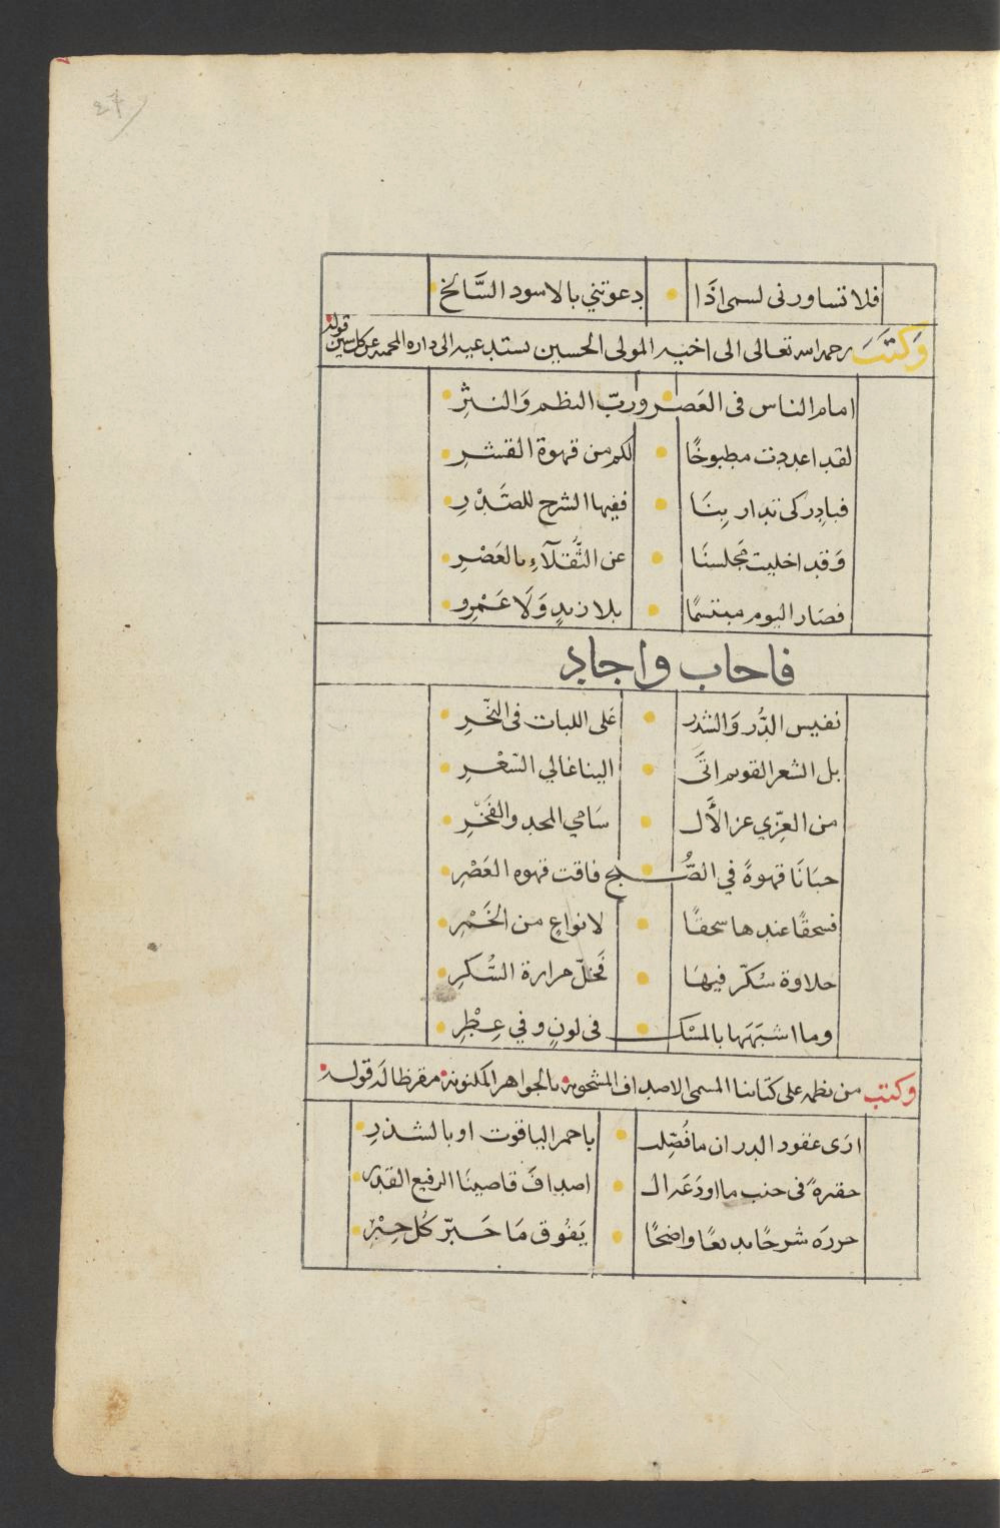 فلا تساورنى لسمى اذَا دعوتني بالاسود السَّالخ
وَكتَبَ رحمه الله تعالى الى اخيه المولى الحسين يستدعيه الى داره المحميه عن كل شين قوله
امام الناس فى العَصر وربّ النظم وَالنثرِ
لقد اعددت مطبوخًا لكم من قهوة القشرِ
فبادِر كى تدار بِنَا ففيها الشرح للصَدْرِ
وَقد اخليت مَجلسنَا عن الثُّقلَآءِ بالعَصْرِ
فصَار اليوم مبتسمًا بلا زيدٍ وَلَا عَمْرِو
فاجاب واجاد
نفيس الدُّر وَالشذر عَلى اللبات فى النّحرِ
بل الشعر القويم اتَى الينا غالي السّعْرِ
من العِزّي عز الأَل سَامي المجد والفَخْرِ
حبَانَا قهوةً في الصُّبح فاقت قهوه العَصْرِ
فسحقًا عندها سحقًا لانواعٍ من الخَمْرِ
حلاوة سُكّر فيهَا فَخلّ مرارة السُّكرِ
وما اشبَهَها بالمسْك فى لونٍ وفي عِطْرِ
وكتب من نظمه على كتابنا المسمى الاصداف المشحونة بالجواهر المكنونة مقرظا لَه قوله
ارَى عقود الدر ان ما فُصِّلت باحمر الياقوت او بالشذرِ
حقيرةً فى جنب ما اودَعَه ال اصدافَ قاضينَا الرفيع القدر
حررَه شرحًا بديعًا واضحًا يَفوق مَا حَبّر كُل حِبْرِ